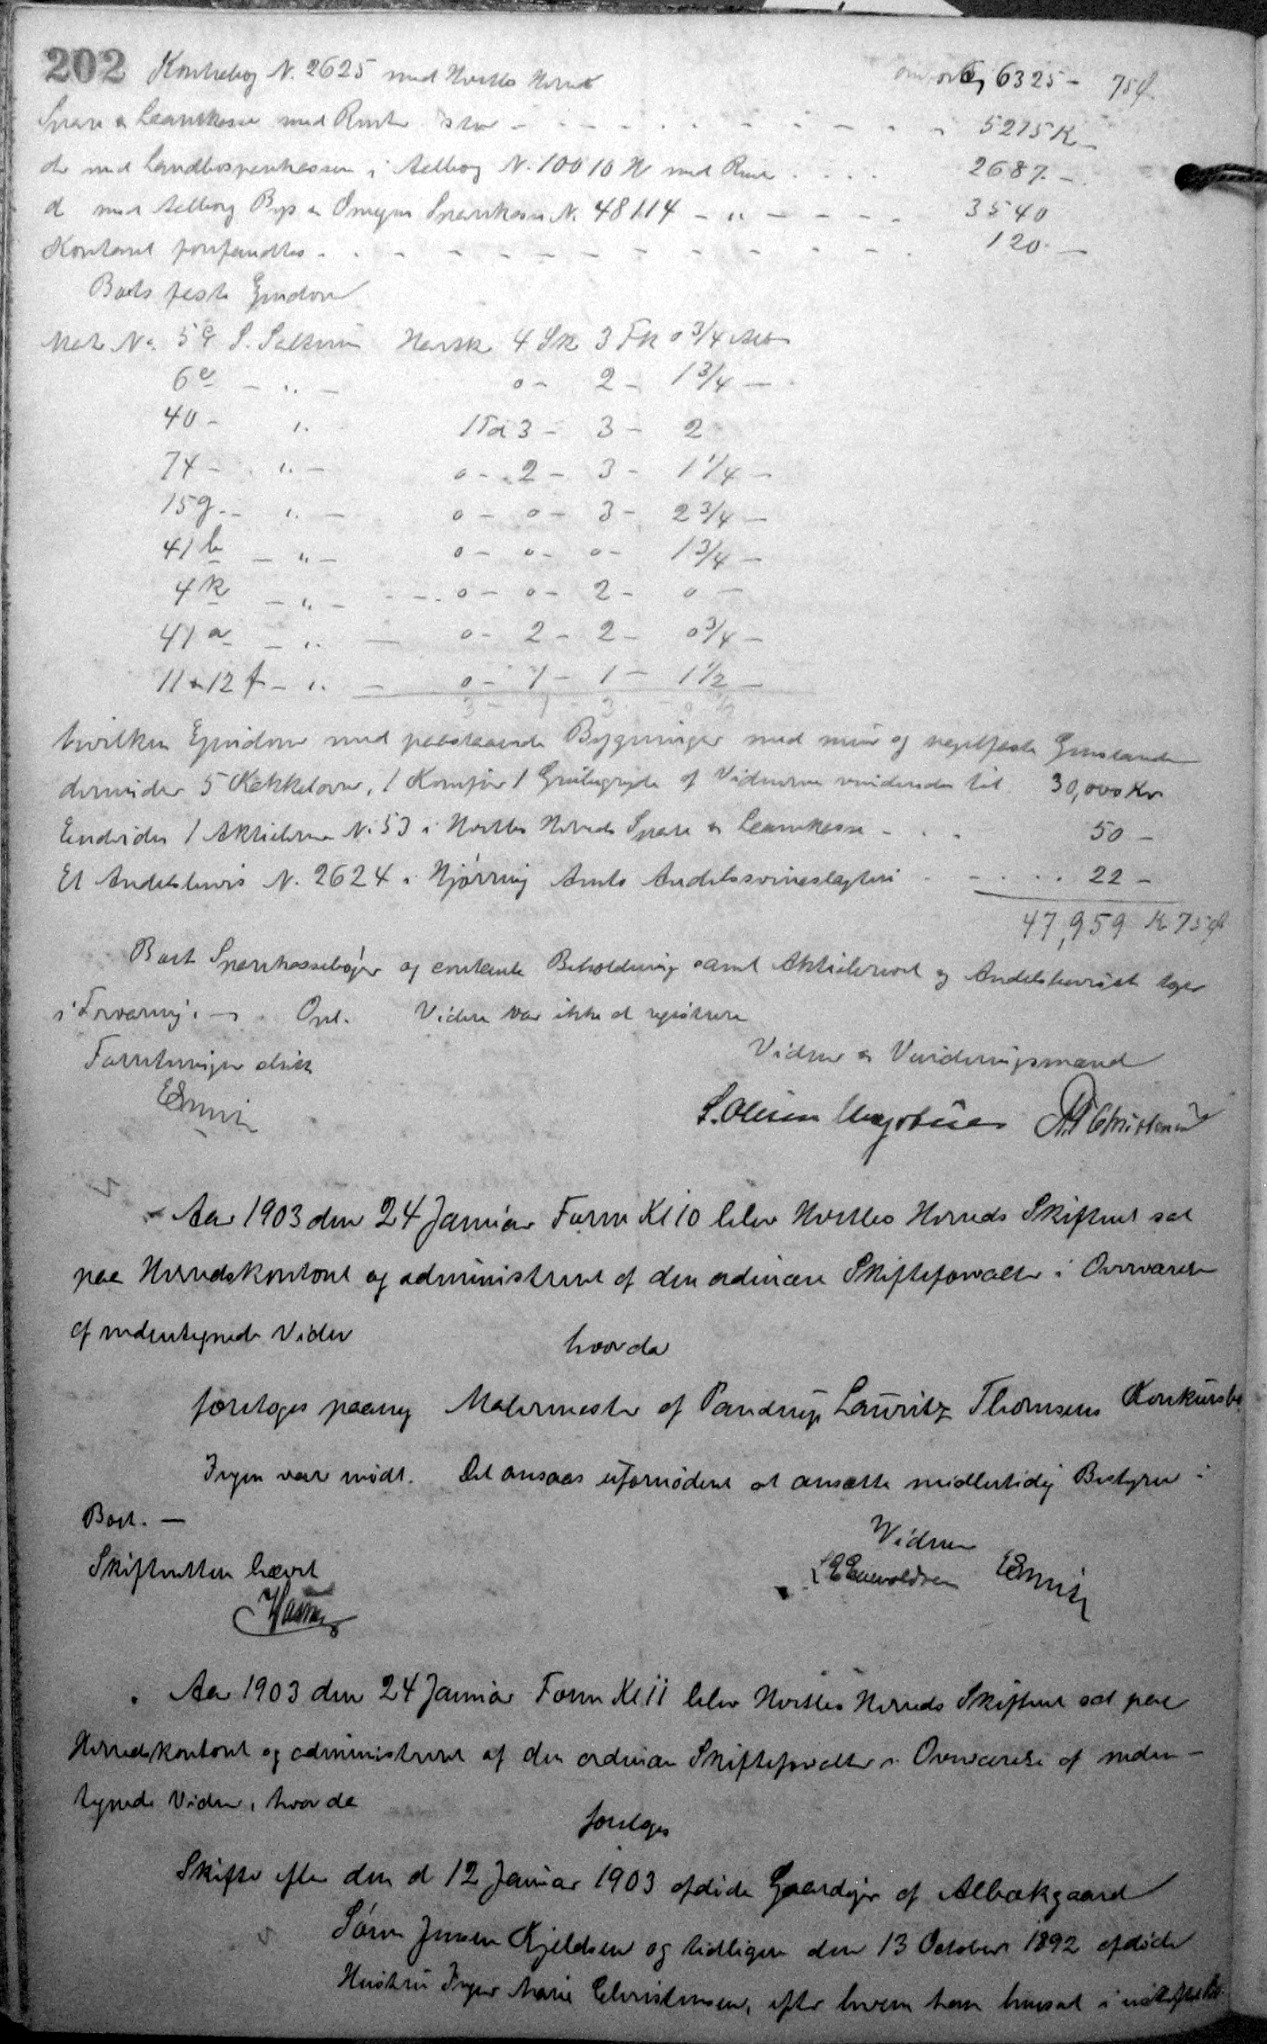 202 Kontrabog N. 2625 med Hvetbo Herred 6325 - 75 Ø
Spare & Laanekasse med Renter stor - - - 5215 K
do med Landbosparekassen i Aalborg N. 10010 med Rente . . . . 2687 -
d med Aalborg Bys og Omegns Sparekasse N. 48114 - " - - - - 3540
Kontant forefandtes . . - - - 120 -
Boets faste Ejendom
Matr No. 5 S. Saltum Hartk 4 Sk 3 Fk 0 3/4 Alb
6e - " - 0 - 2 - 1 3/4 -
40 - " 1 Td 3 - 3 - 2
74 - " - 0 - 2 - 3 - 1 1/4 -
15g - " - 0 - 0 - 3 - 2 3/4 -
41b - " - 0 - 0 - 0 - 1 3/4 -
4k - " - 0 - 0 - 2 - 0 -
41a - " - 0 - 2 - 2 - 0 3/4 -
11 & 12 f - " - 0 - 1 - 1 - 1 1/2 -
3 - 1 - 3 - 0
hvilken Ejendom med paastaaende Bygninger med mur og nagelfaste Genstande
derunder 5 Kakkelovne, 1 Komfur 1 Grubegryde af Vidnerne vurderedes til 30,000 Kr
Endvidere 1 Aktiebrev N. 53 i Hvetbo Herreds Spare & Laanekasse - . . 50 -
Et Andelsbevis N. 2624 i Hjørring Amts Andelssvineslagteri . - . . . 22 -
47,959 K 75 Ø
Boets Sparekassebøger og contante Beholdning samt Aktiebrevet og Andelsbeviset toges
i Forvaring. - Opl. Videre var ikke at registrere
Forretningen sluttet
Vidner & Vurderingsmænd
S. Olesen
Christensen
Aar 1903 den 24 Januar Form Kl 10 blev Hvetbo Herreds Skifteret sat
paa Herredskontoret og administreret af den ordinære Skifteforvalter i Overværelse
af undertegnede Vidner
hvorda
foretoges paany Malermester af Pandrup Lauritz Thomsens Konkursbo
Ingen var mødt. Det ansaas ufornødent at ansætte midlertidig Bestyrer i
Boet. -
Vidner
Skifteretten hævet
Enevoldsen
Aar 1903 den 24 Januar Form Kl 11 blev Hvetbo Herreds Skifteret sat paa
Herredskontoret og administreret af den ordinære Skifteforvalter i Overværelse af under-
tegnede Vidner, hvorda
foretoges
Skifte efter den d 12 Januar 1903 afdøde Gaardejer af Albækgaard
Søren Jensen Kjeldsen og tidligere den 13 October 1892 afdøde
Hustru Inger Marie Christensen, efter hvem han hensad i uskiftet Bo